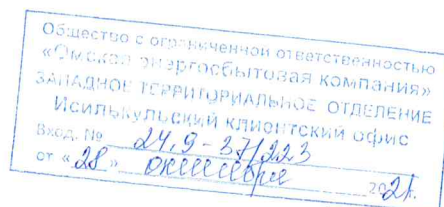 Общество с ограниченной ответственностью
«Омская энергосбытовая компания»
ЗАПАДНОЕ ТЕРРИТОРИАЛЬНОЕ ОТДЕЛЕНИЕ
Исилькульский клиентский офис
Вход. № 24,9-37/223
от «28» октября 2021.